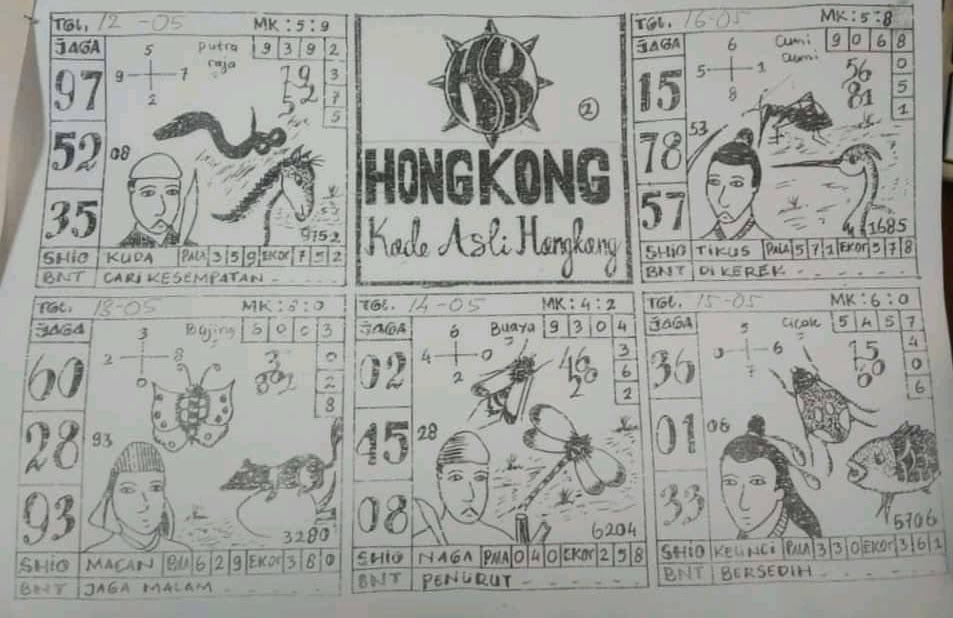 TGL. 12-05 MK:5:9
JAGA 5 putra 9 3 9 2
raja
9 7 19 3
97 2 52 7
5
52 08
35 53
9752
SHIO KUDA PALA 3 5 9 EKOR 7 5 2
BNT CARI KESEMPATAN
HK
2
HONGKONG
Kode Asli Hongkong
TGL. 16-05 MK:5:8
JAGA 6 Cumi 9 0 6 8
Cumi
5 1 56 0
15 8 81 5
1
78 53
57 1685
SHIO TIKUS PALA 5 7 1 EKOR 5 7 8
BNT DI KEREK
TGL. 13-05
JAGA 3 6 0 0 3
2 8 0
60 0 802 2
8
28 93
93 3280
SHIO MACAN PALA 6 2 9 EKOR 3 8 0
BNT JAGA MALAM
TGL. 14-05 MK:4:2
JAGA 6 Buaya 9 3 0 4
4 0 46 3
02 2 20 6
2
45 28
08 6204
SHIO NAGA PALA 0 4 0 EKOR 2 5 8
BNT PENURUT
TGL. 15-05 MK:6:0
JAGA 5 Cicak 5 4 5 7
6 15 4
36 7 60 0
6
01 06
33 5706
SHIO KELINCI PALA 3 3 0 EKOR 3 6 1
BNT BERSEDIH